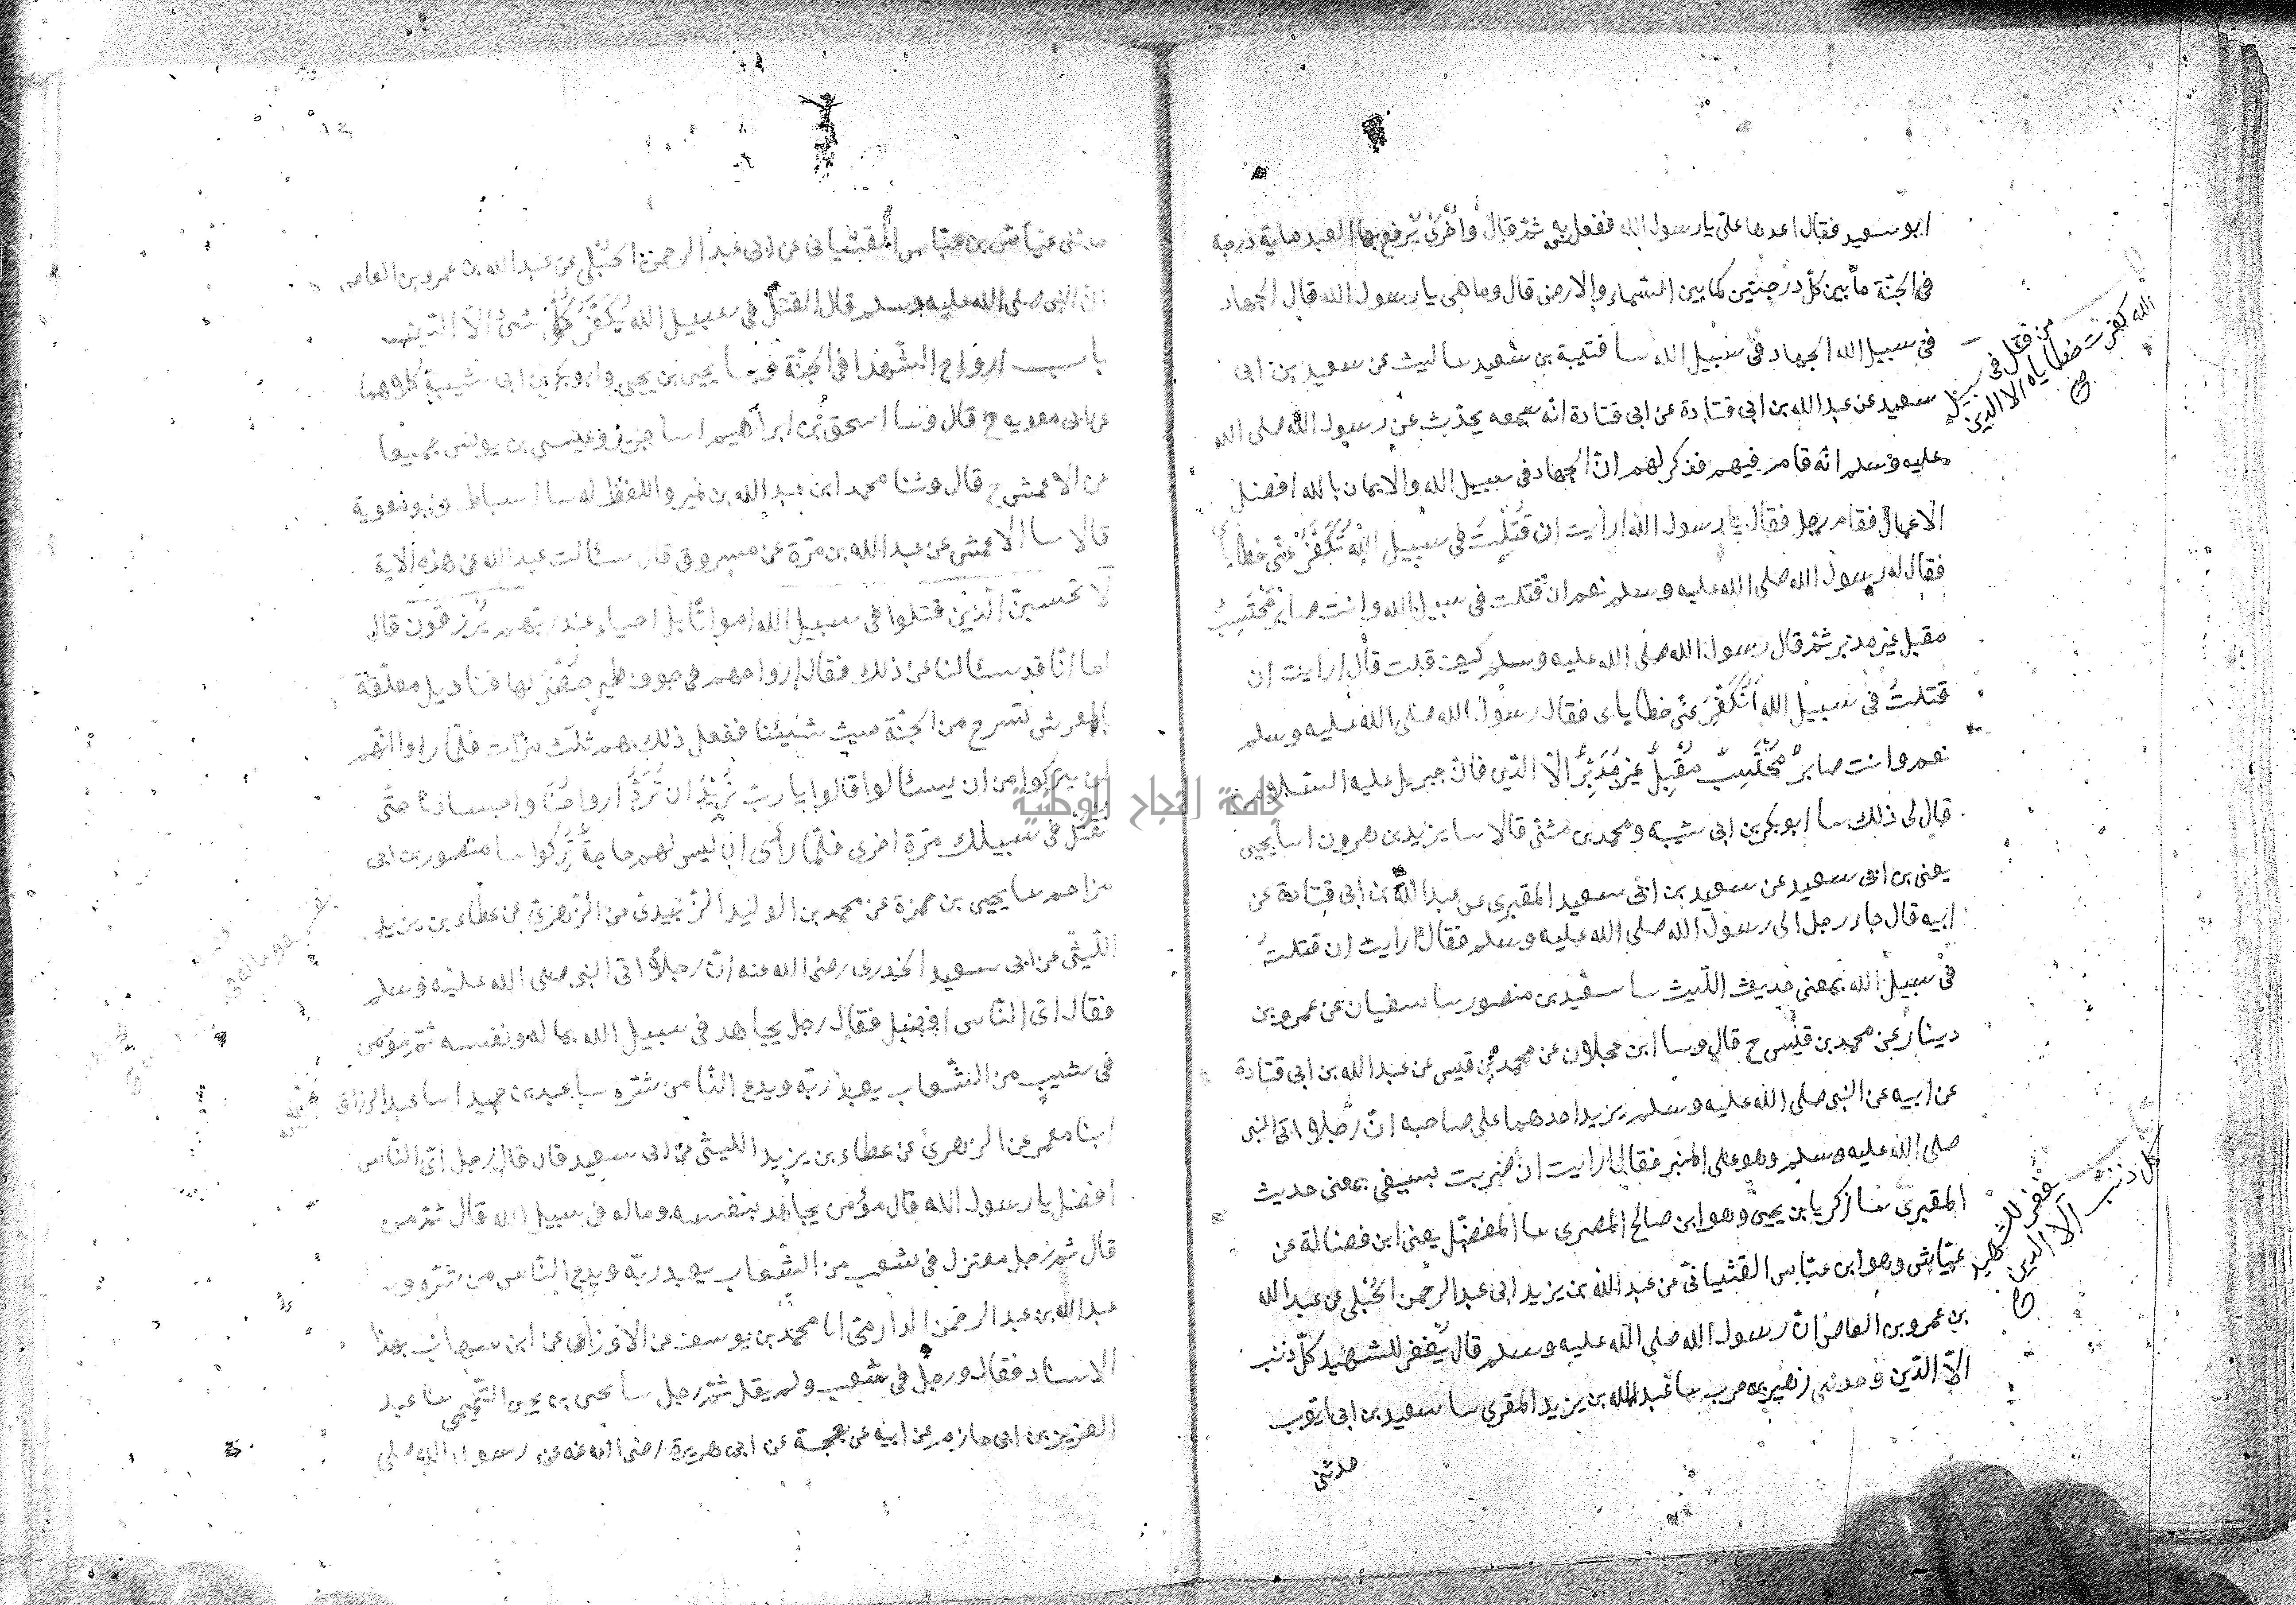 ابو سعيد فقال اعدها علي يا رسول الله ففعل ثم قال واخرى يرفع بها العبد ماية درجة
في الجنة ما بين كل درجتين كما بين السماء والارض قال وما هي يا رسول الله قال الجهاد
في سبيل الله الجهاد في سبيل الله سا قتيبة بن سعيد سا ليث عن سعيد بن ابي
سعيد عن عبد الله بن ابي قتادة عن ابي قتادة انه سمعه يحدث عن رسول الله صلى الله
عليه وسلم انه قام فيهم فذكر لهم ان الجهاد في سبيل الله والايمان بالله افضل
الاعمال فقام رجل فقال يا رسول الله ارايت ان قُتِلْتُ في سبيل الله تُكَفَّرُ عني خطاياي
فقال له رسول الله صلى الله عليه وسلم نعم ان قتلت في سبيل الله وانت صابر محتسب
مقبل غير مدبر ثم قال رسول الله صلى الله عليه وسلم كيف قلت قال ارايت ان
قتلت في سبيل الله أتكفر عني خطاياى فقال رسول الله صلى الله عليه وسلم
نعم وانت صابرٌ محتسِبٌ مُقْبِلٌ غير مُدْبِرٍ الا الدين فان جبريل عليه السلام
قال لى ذلك سا ابو بكر بن ابى شيبة ومحمد بن مثنى قالا سا يزيد بن هرون اسا يحيى
يعنى بن ابى سعيد عن سعيد بن ابى سعيد المقبرى عن عبد الله بن ابى قتادة عن
ابيه قال جاء رجل الى رسول الله صلى الله عليه وسلم فقال ارايت ان قتلت
في سبيل الله بمعنى حديث الليث سا سعيد بن منصور سا سفيان عن عمرو بن
دينار عن محمد بن قيس ح قال وسا ابن عجلان عن محمد بن قيس عن عبد الله بن ابى قتادة
عن ابيه عن النبى صلى الله عليه وسلم يزيد احدهما على صاحبه ان رجلا اتى النبى
صلى الله عليه وسلم وهو على المنبر فقال ارايت ان ضربت بسيفى بمعنى حديث
المقبرى سا زكريا بن يحيى وهو ابن صالح المصرى سا المفضل يعنى ابن فضالة عن
عياش وهو ابن عباس القتبانى عن عبد الله بن يزيد ابى عبد الرحمن الحُبُلى عن عبد الله
بن عمرو بن العاص ان رسول الله صلى الله عليه وسلم قال يُغفر للشهيد كل ذنب
الا الدين وحدثنى زهير بن حرب سا عبد الله بن يزيد المقرى سا سعيد بن ابى ايوب
حدثنى
من قتل فى سبيل
الله كفرت خطاياه الا الدين
يغفر للشهيد
كل ذنب الا الدين
حدثنى عياش بن عباس القتبانى عن ابى عبد الرحمن الحُبُلى عن عبد الله بن عمرو بن العاص
ان النبى صلى الله عليه وسلم قال القتل فى سبيل الله يُكَفِّرُ كُلَّ شئ الا الدين
باب ارواح الشهدا فى الجنة يحيى بن يحيى وابو بكر بن ابى شيبة كلاهما
عن ابى معويه ح قال وسا اسحق بن ابراهيم اسا جرير وعيسى بن يونس جميعا
عن الاعمش ح قال وثنا محمد ابن عبد الله بن نمير واللفظ له سا اسباط وابو معوية
قالا سا الاعمش عن عبد الله بن مرة عن مسروق قال سئالت عبد الله عن هذه الاية
لا تحسبن الذين قتلوا فى سبيل الله امواتا بل احياء عند ربهم يرزقون قال
اما انا قد سئالنا عن ذلك فقال ارواحهم فى جوف طير خضر لها قناديل معلقة
بالعرش تسرح من الجنة حيث ففعل ذلك بهم ثلث مرات فلما راوا انهم
لن يتركوا من ان يسئالوا قالوا يا رب نُرِيْدُ ان تُرَدَّ ارواحُنا واجسادنا حتى
نقتل فى سبيلك مرة اخرى فلما رأى ان ليس لهم حاجة تُرِكوا سا منصور بن ابى
مزاحم سا يحيى بن حمزة عن محمد بن الوليد الزبيدى عن الزهرى عن عطاء بن يزيد
الليثى عن ابى سعيد الخدرى رضى الله عنه ان رجلا اتى النبى صلى الله عليه وسلم
فقال اى الناس افضل فقال رجل يجاهد فى سبيل الله بماله ونفسه ثم مؤمن
فى شعب من الشعاب يعبد ربه ويدع الناس من شره سا عبد بن حميد اسا عبد الرزاق
ابنا معمر عن الزهرى عن عطاء بن يزيد الليثى عن ابى سعيد قال قال رجل اى الناس
افضل يا رسول الله قال مؤمن يجاهد بنفسه وماله فى سبيل الله قال ثم من
قال ثم رجل معتزل فى شعب من الشعاب يعبد ربه ويدع الناس من شره
عبد الله بن عبد الرحمن الدارمى انا محمد بن يوسف عن الاوزاعى عن ابن شهاب بهذا
الاسناد فقال ورجل فى شعب ولم يقل ثم رجل سا يحيى بن يحيى التميمى سا عبد
العزيز بن ابى حازم عن ابيه عن بعجة عن ابى هريرة رضى الله عنه عن رسول الله صلى
جامعة النجاح الوطنية